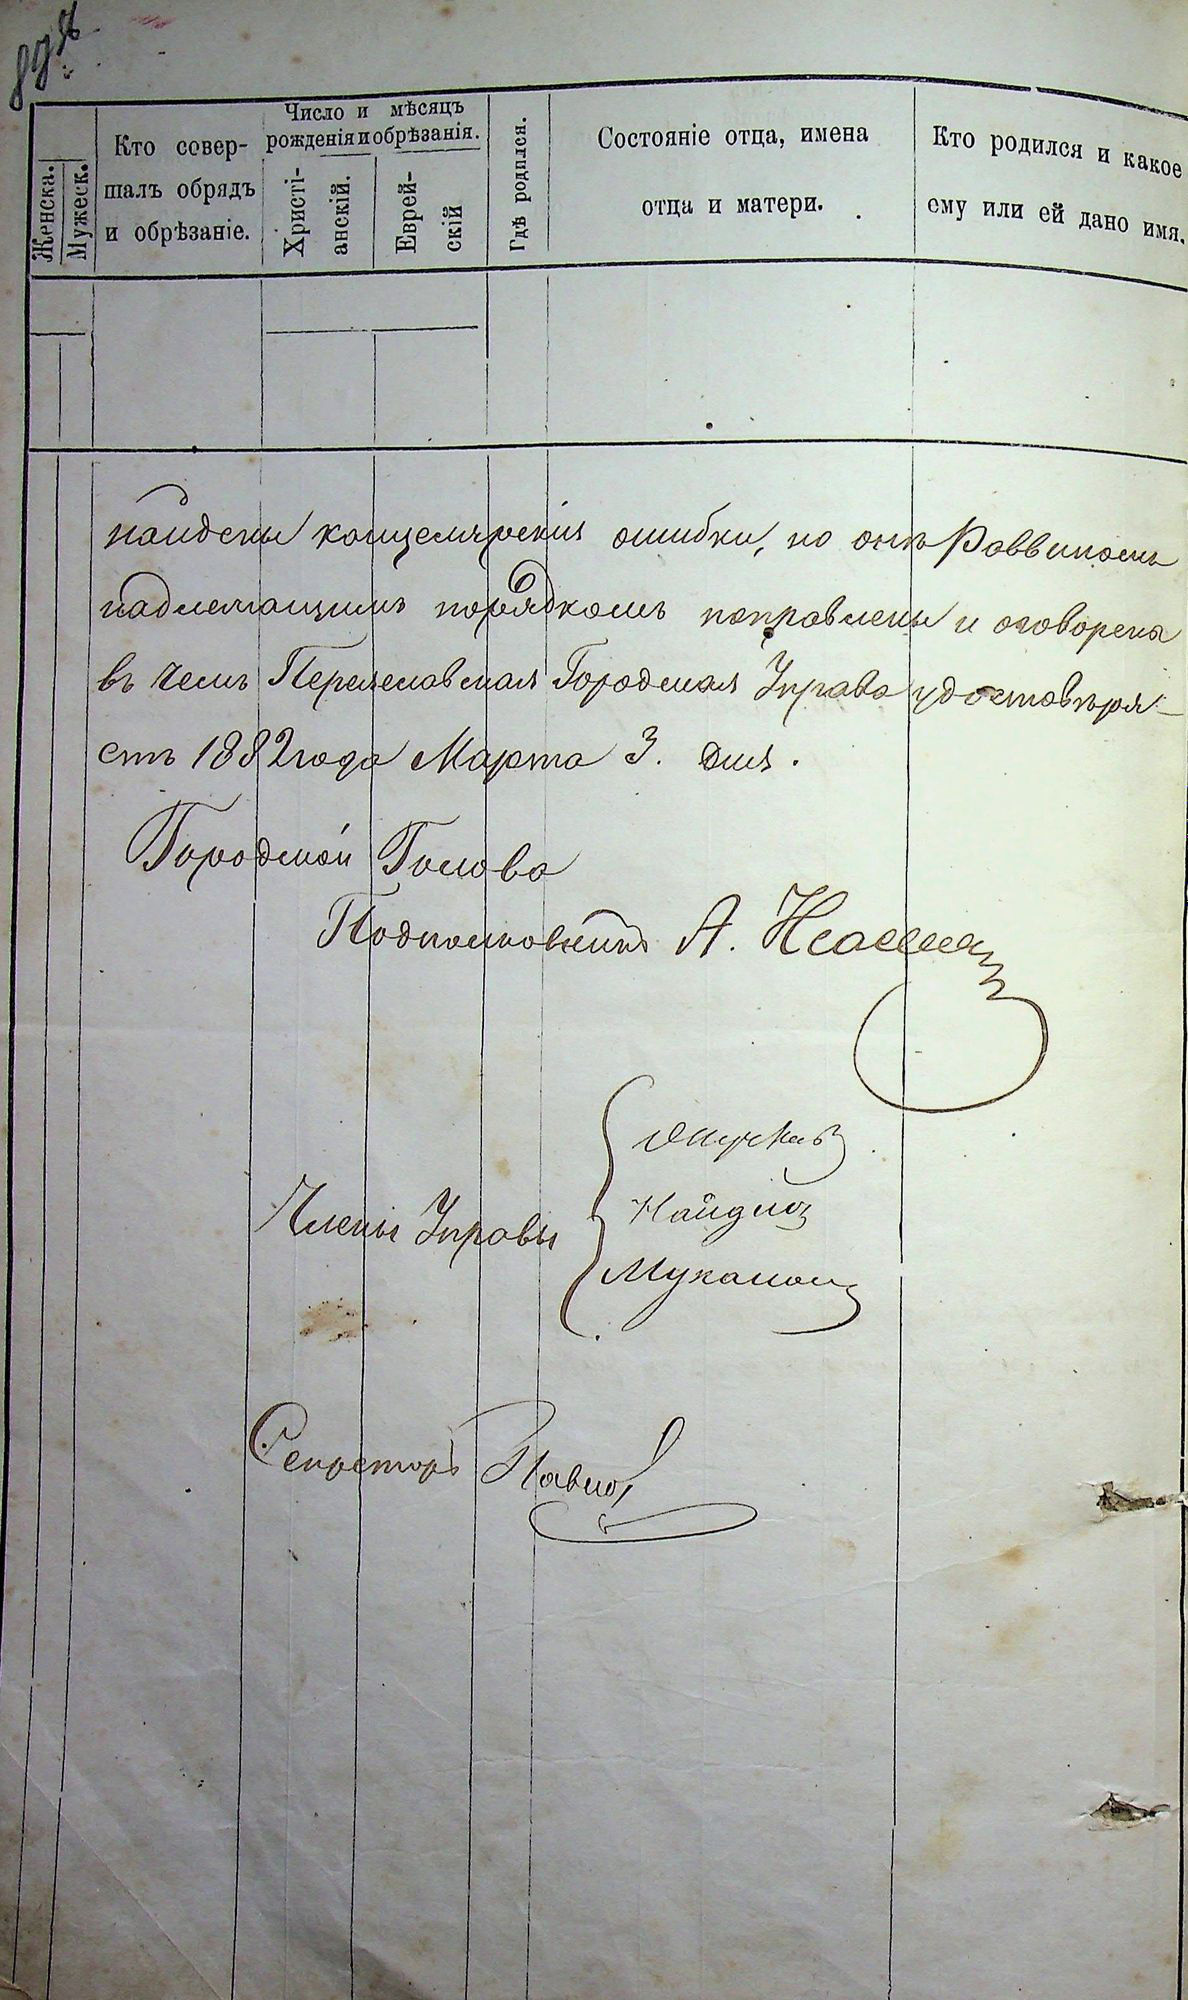 Женска.
Мужеск.
Кто совер-
шалъ обрядъ
и обрѣзаніе.
Число и мѣсяцъ
рожденія и обрѣзанія.
Христі-
анскій.
Еврей-
скій
Гдѣ родился.
Состояніе отца, имена
отца и матери.
Кто родился и какое
ему или ей дано имя.
найдены канцелярскія ошибки, но онѣ Раввиномъ
надлежащимъ порядкомъ поправлены и оговорены
въ чемъ Переяславская Городская Управа удостовѣря-
етъ 1882 года Марта 3. дня.
Городской Голова
Подполковникъ А.
Члены Управы
Секретарь Павлов